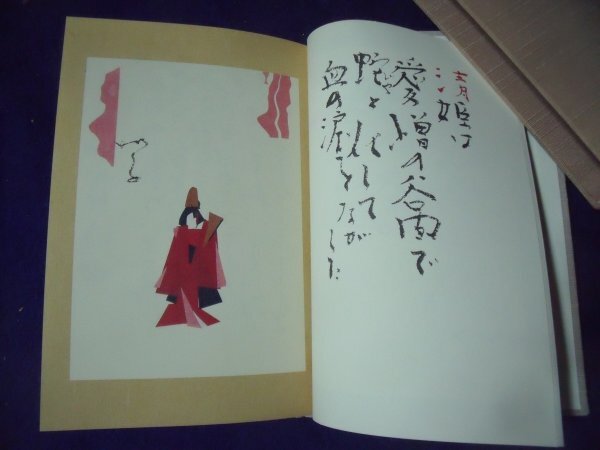 清姫は
愛憎の谷間で
蛇と化して
血の涙をながした